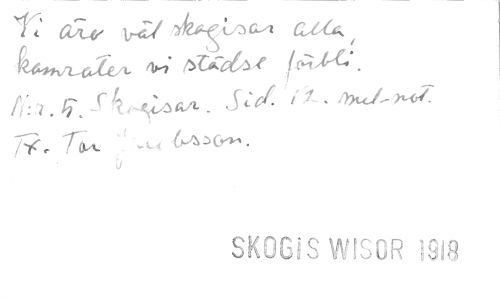 Vi äro väl skogisar alla,
kamrater vi städse förbli.
N:r. 5. Skogisar. Sid. 12. mel-not.
Tx. Tor
SKOGIS WISOR 1918